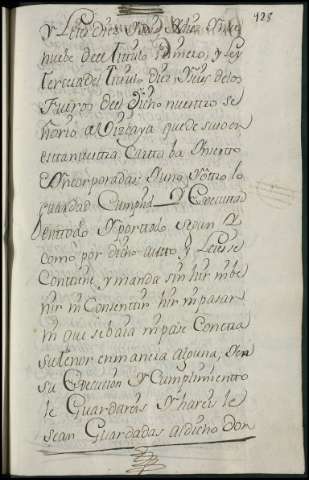 128
y Leies diez Nuebe
nuebe de el titulo Primero, y Ley
tercera del titulo diez y seis de los
fueros de el dicho nuestro se
ñorio de Vizcaya que de suso en
esta nuestra Carta ba Ynserto
e Yncorporadas
guardad Cumplid y Executad
en todo y por todo segun y
como por dicho autto y Leies se
Contiene, y manda sin hir ni be
nir ni Consentir hir ni pasar
ni que se baia ni pase Contra
su tenor en manera alguna, y en
su Execucion y Cumplimiento
le Guardareis y hareis le
sean Guardadas al dicho Don